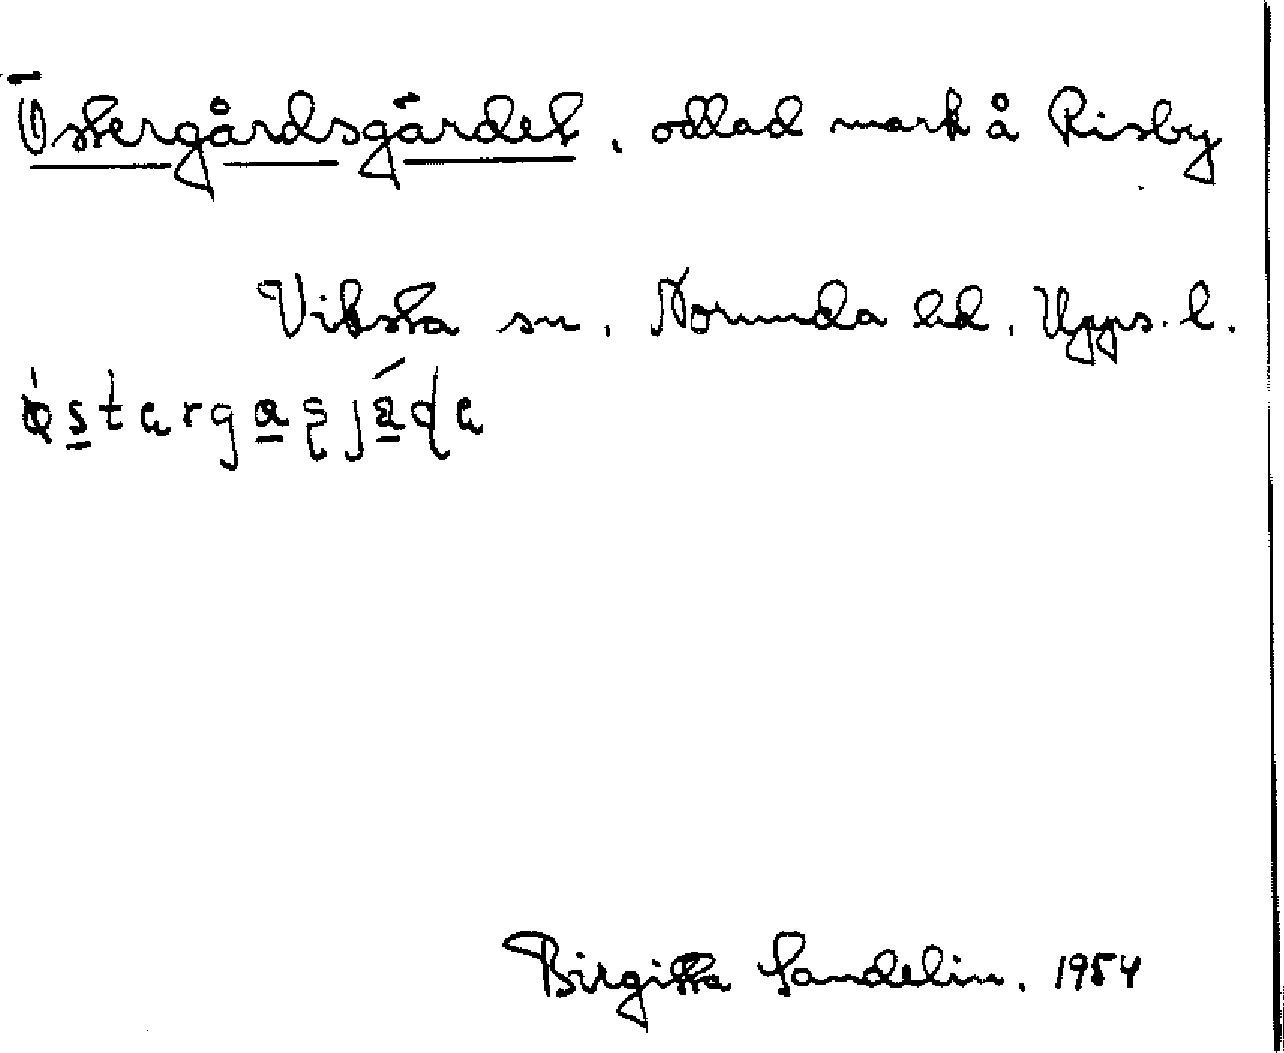 Östergårdsgärdet, odlad mark å Risby
Viksta sn, Norunda hd, Upps. l.
Birgitta Sandelin. 1954